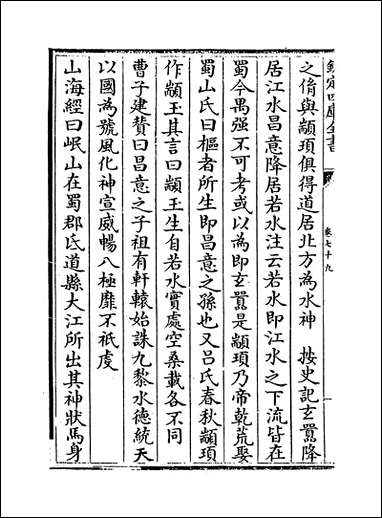 欽定四庫全書
卷七十九
之佾與顓頊俱得道居北方為水神 按史記玄囂降
居江水昌意降居若水注云若水即江水之下流皆在
蜀今禺强不可考或以為即玄囂是顓頊乃帝乾荒娶
蜀山氏曰樞者所生即昌意之孫也又吕氏春秋顓頊
作顓玉其言曰顓玉生自若水實處空桑載各不同
曹子建賛曰昌意之子祖有軒轅始誅九黎水德統天
以國為號風化神宣威暢八極靡不祗虔
山海經曰岷山在蜀郡氐道縣大江所出其神狀馬身